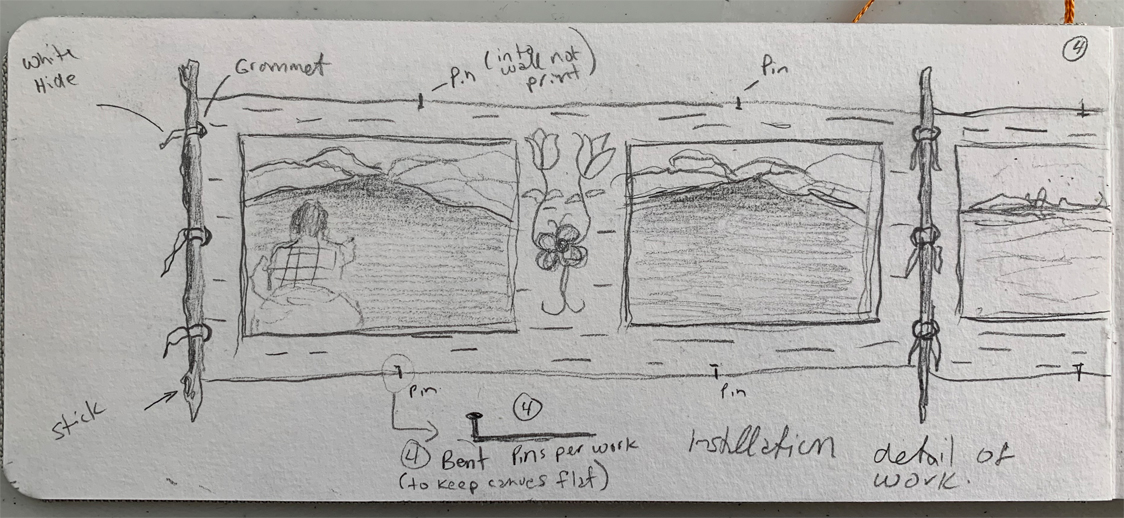 ④
White
Hide
Grommet
Pin (into
wall not
print)
Pin
Stick
Pin
Pin
④
④ Bent Pins per work
(to keep canves flat)
Instllation detail of
work.